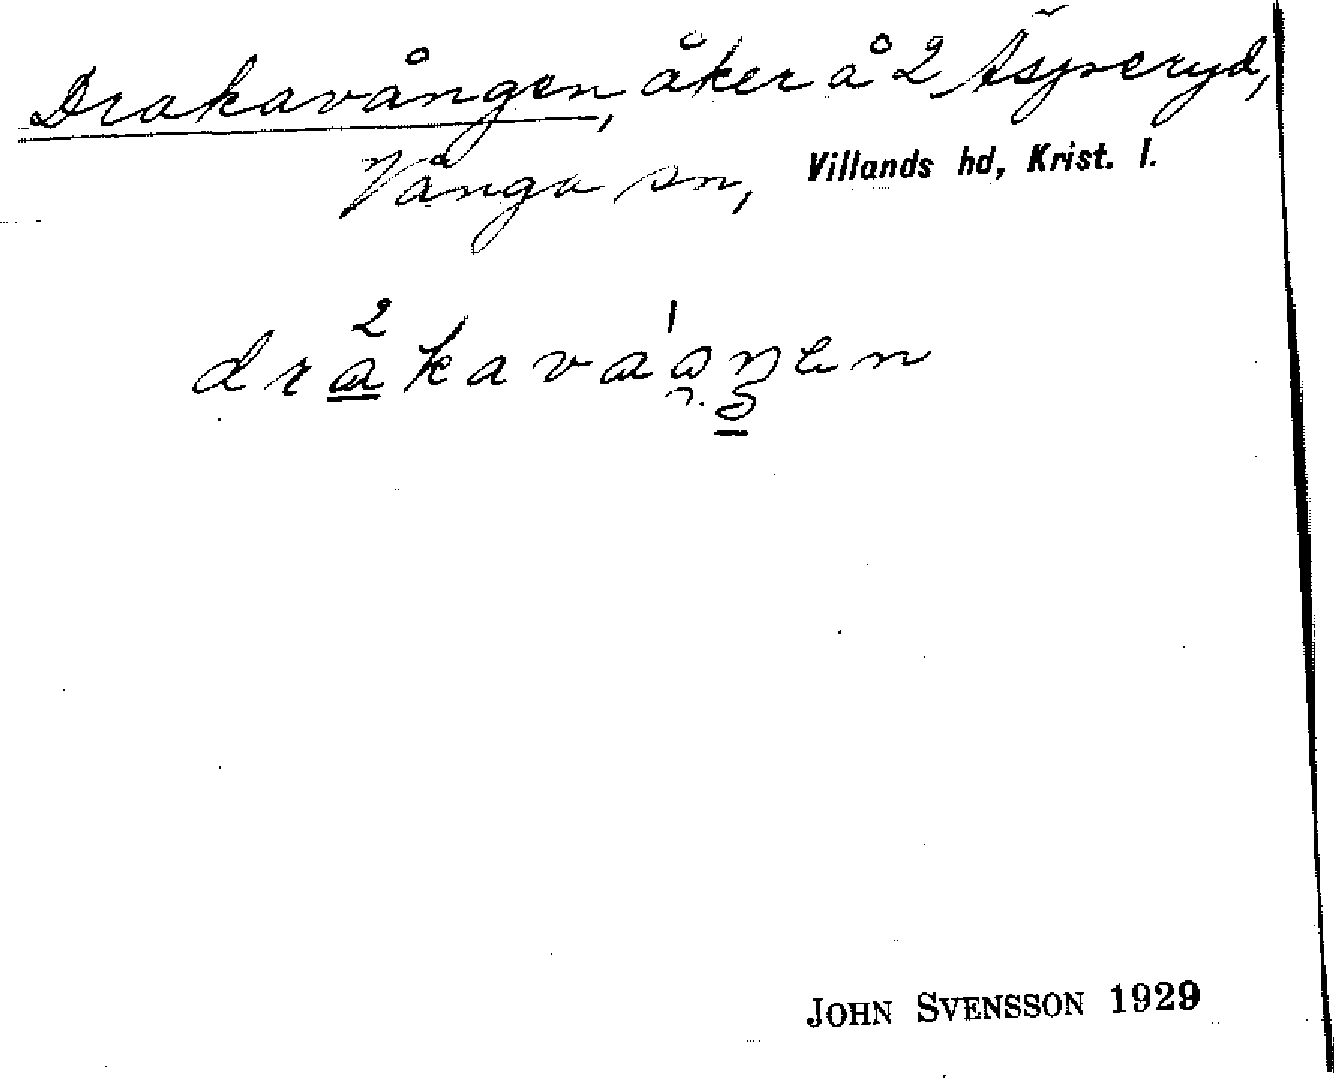 Drakavången, åker å 2 Äsperyd,
Vånga sn, Villands hd, Krist. l.
JOHN SVENSSON 1929